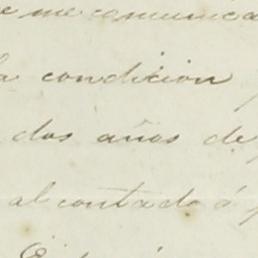 e me comunica
la condicion
dos años de
al contado á